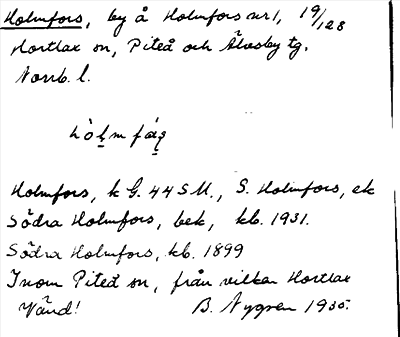 Holmfors, by å Holmfors nr 1, 19/128
Hortlax sn, Piteå och Älvsby tg.
Norrb. l.
Holmfors, k G. 44 SU., S. Holmfors, ek
Södra Holmfors, bek, kb. 1931.
Södra Holmfors, kb. 1899
Inom Piteå sn, från vilken Hortlax
Vänd! B. Nygren 1935.